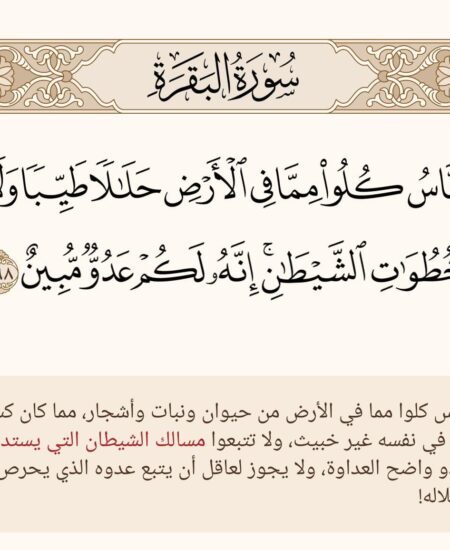 سُورَةُ البَقَرَةِ
كُلُواْ مِمَّا فِي ٱلۡأَرۡضِ حَلَٰلٗا طَيِّبٗا
خُطُوَٰتِ ٱلشَّيۡطَٰنِۚ إِنَّهُۥ لَكُمۡ عَدُوّٞ مُّبِينٌ
كلوا مما في الأرض من حيوان ونبات وأشجار، مما كان
في نفسه غير خبيث، ولا تتبعوا مسالك الشيطان التي
واضح العداوة، ولا يجوز لعاقل أن يتبع عدوه الذي يحرص